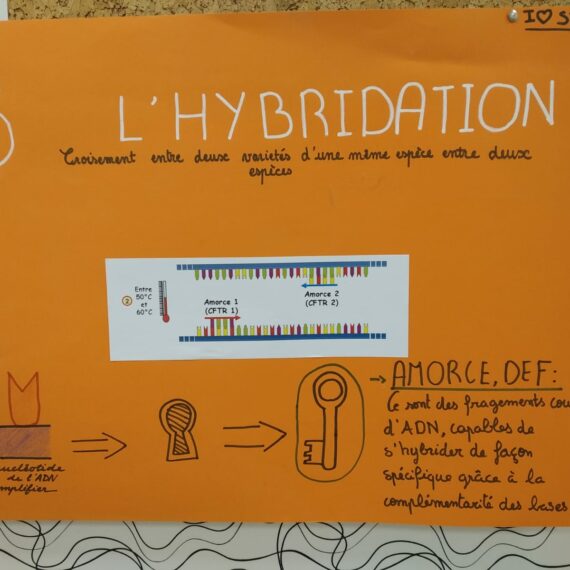 I♡S
L'HYBRIDATION
Croisement entre deux variétés d'une même espèce entre deux
espèces
②
Entre
50°C
et
60°C
Amorce 1
(CFTR 1)
Amorce 2
(CFTR 2)
→ AMORCE, DEF:
Ce sont des fragements cou
d'ADN, capables de
s'hybrider de façon
spécifique grâce à la
complémentarité des bases
nucléotide
de l'ADN
mplifier